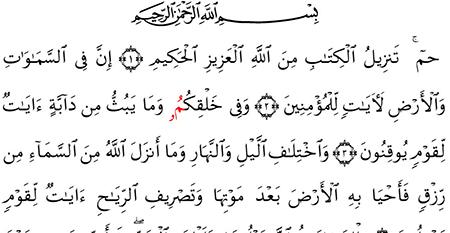 بِسْمِ اللَّهِ الرَّحْمَٰنِ الرَّحِيمِ
حمٓ ۚ تَنزِيلُ الْكِتَابِ مِنَ اللَّهِ الْعَزِيزِ الْحَكِيمِ ﴿١﴾ إِنَّ فِي السَّمَاوَاتِ
وَالْأَرْضِ لَآيَاتٍ لِّلْمُؤْمِنِينَ ﴿٢﴾ وَفِي خَلْقِكُمُۥ وَمَا يَبُثُّ مِن دَابَّةٍ ءَايَاتٌ
لِّقَوْمٍ يُوقِنُونَ ﴿٣﴾ وَاخْتِلَافِ الَّيْلِ وَالنَّهَارِ وَمَا أَنزَلَ اللَّهُ مِنَ السَّمَاءِ مِن
رِّزْقٍ فَأَحْيَا بِهِ الْأَرْضَ بَعْدَ مَوْتِهَا وَتَصْرِيفِ الرِّيَاحِ ءَايَاتٌ لِّقَوْمٍ